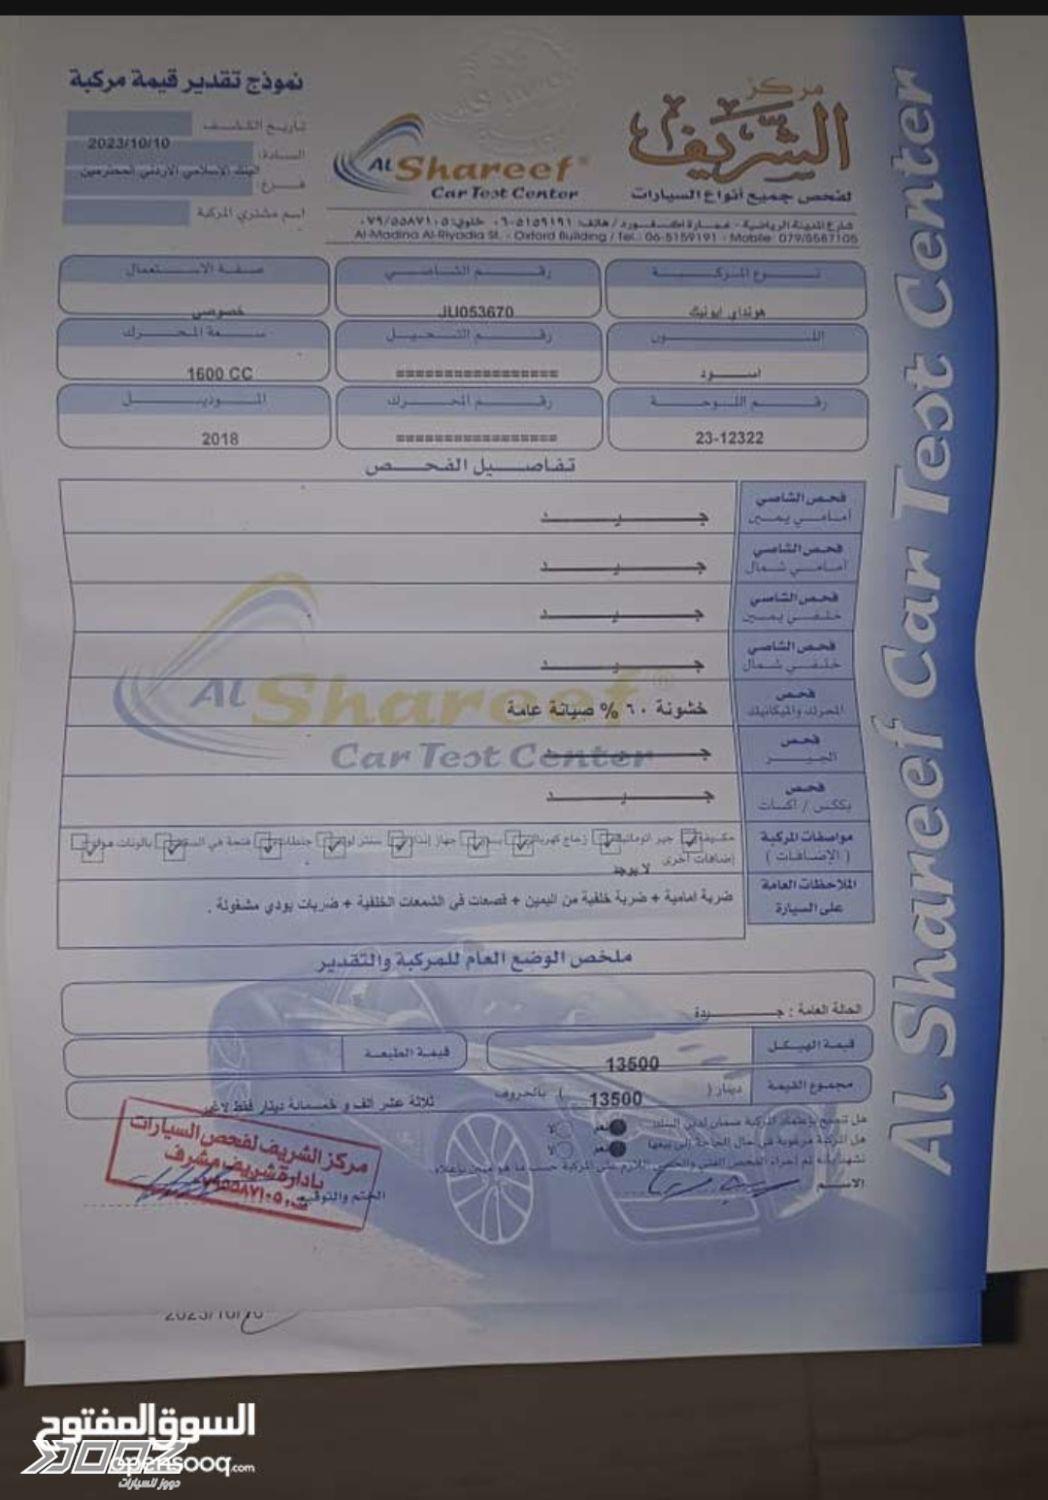 نموذج تقدير قيمة مركبة
تاريخ الكشف
2023/10/10
السادة:
البنك الاسلامي الاردني المحترمين
فرع:
اسم مشتري المركبة
AL Shareef®
Car Test Center
مركز
الشريف
لفحص جميع أنواع السيارات
شارع المدينة الرياضية - عمارة اكسفورد / هاتف: ٠٦-٥١٥٩١٩١ خلوي: ٠٧٩/٥٥٨٧١٠٥
Al-Madina Al-Riyadia St. - Oxford Building / Tel.: 06-5159191 - Mobile: 079/5587105
نوع المركبة
هونداي ايونيك
رقم الشاصي
JU053670
صفة الاستعمال
خصوصي
اللون
اسود
رقم التسجيل
=================
سعة المحرك
1600 CC
رقم اللوحة
23-12322
رقم المحرك
=================
الموديل
2018
تفاصيل الفحص
فحص الشاصي
أمامي يمين
جيد
فحص الشاصي
أمامي شمال
جيد
فحص الشاصي
خلفي يمين
جيد
فحص الشاصي
خلفي شمال
جيد
فحص
المحرك والميكانيك
خشونة ٦٠ % صيانة عامة
فحص
الجير
جيد
فحص
بككس / أكسات
جيد
AL Shareef®
Car Test Center
مواصفات المركبة
( الإضافات )
مكيف جير اتوماتيك زجاج كهرباء جهاز إنذار سنتر لوك جنطات فتحة في السقف بالونات هواء
إضافات أخرى لا يوجد
الملاحظات العامة
على السيارة
ضربة امامية + ضربة خلفية من اليمين + قصعات في الشمعات الخلفية + ضربات بودي مشغولة .
ملخص الوضع العام للمركبة والتقدير
الحالة العامة : جيدة
قيمة الهيكل
13500
قيمة الطبعة
مجموع القيمة
دينار ( 13500 ) بالحروف
ثلاثة عشر الف و خمسمائة دينار فقط لاغير
نعم لا
نعم لا
الاسم
الختم والتوقيع
مركز الشريف لفحص السيارات
بادارة شريف مشرف
٠٧٩٥٥٨٧١٠٥
Al Shareef Car Test Center
2023/10/10
السوق المفتوح
opensooq.com
DOOZ
دووز للسيارات